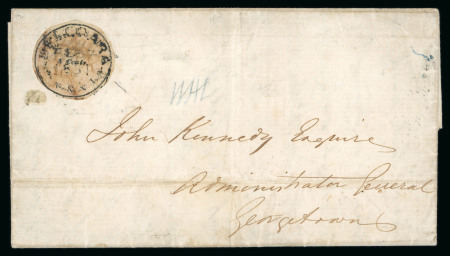 John Kennedy Esquire
Administrator General
Georgetown